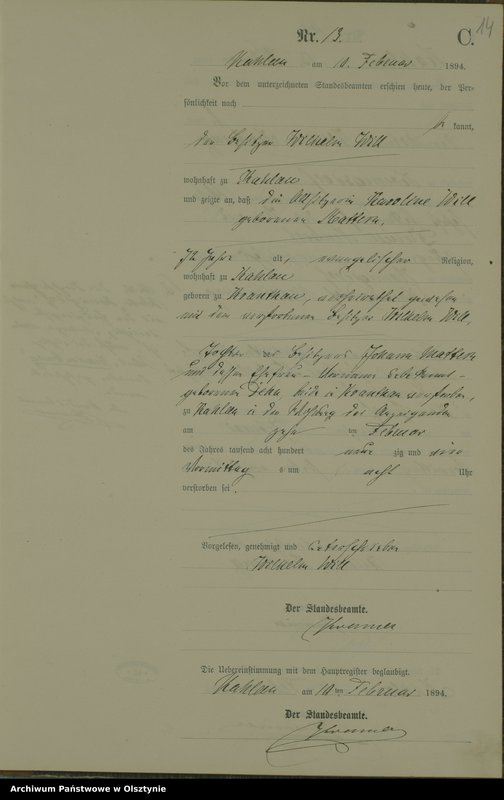 14
Nr. 13.
C.
Kahlau am 10. Februar 1894.
Vor dem unterzeichneten Standesbeamten erschien heute, der Per-
sönlichkeit nach
kannt,
der Besitzer Wilhelm Will
wohnhaft zu Kahlau
und zeigte an, daß die Altsitzerin Karoline Will
geborenen Mattern,
Jahre alt, evangelischer Religion,
wohnhaft zu Kahlau
geboren zu verheirathet gewesen
mit dem verstorbenen Besitzer Wilhelm Will,
Tochter des Besitzers Johann Mattern
und dessen Ehefrau – Vorname unbekannt –
geborenen beide in verstorben,
zu Kahlau in der Wohnung des Anzeigenden
am zehn ten Februar
des Jahres tausend acht hundert neun zig und vier
Vormittag s um acht Uhr
verstorben sei.
Vorgelesen, genehmigt und unterschrieben
Wilhelm Will
Der Standesbeamte.
Die Uebereinstimmung mit dem Hauptregister beglaubigt.
Kahlau am 10 ten Februar 1894.
Der Standesbeamte.
Archiwum Państwowe w Olsztynie